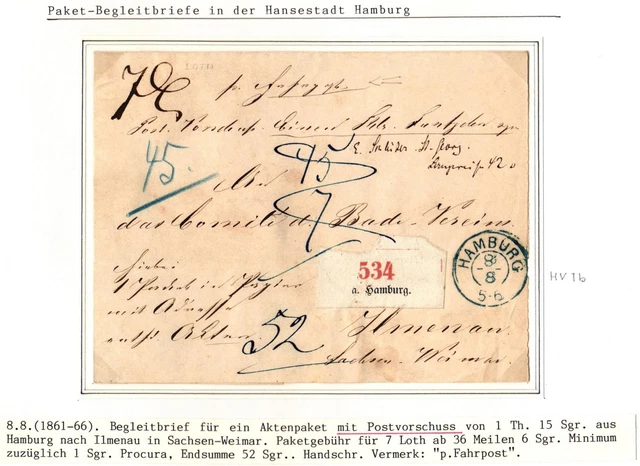 Paket-Begleitbriefe in der Hansestadt Hamburg
LOTH
p. Fahrpost
45.
45
An
7
das Comité d. Bade-Verein
HAMBURG
8
8
5-6
HV 16
534
a. Hamburg.
Hiebei
1 Packet in Papier
mit Adresse
enth. Akten
52
Ilmenau
Sachsen-Weimar.
8.8.(1861-66). Begleitbrief für ein Aktenpaket mit Postvorschuss von 1 Th. 15 Sgr. aus
Hamburg nach Ilmenau in Sachsen-Weimar. Paketgebühr für 7 Loth ab 36 Meilen 6 Sgr. Minimum
zuzüglich 1 Sgr. Procura, Endsumme 52 Sgr.. Handschr. Vermerk: "p.Fahrpost".